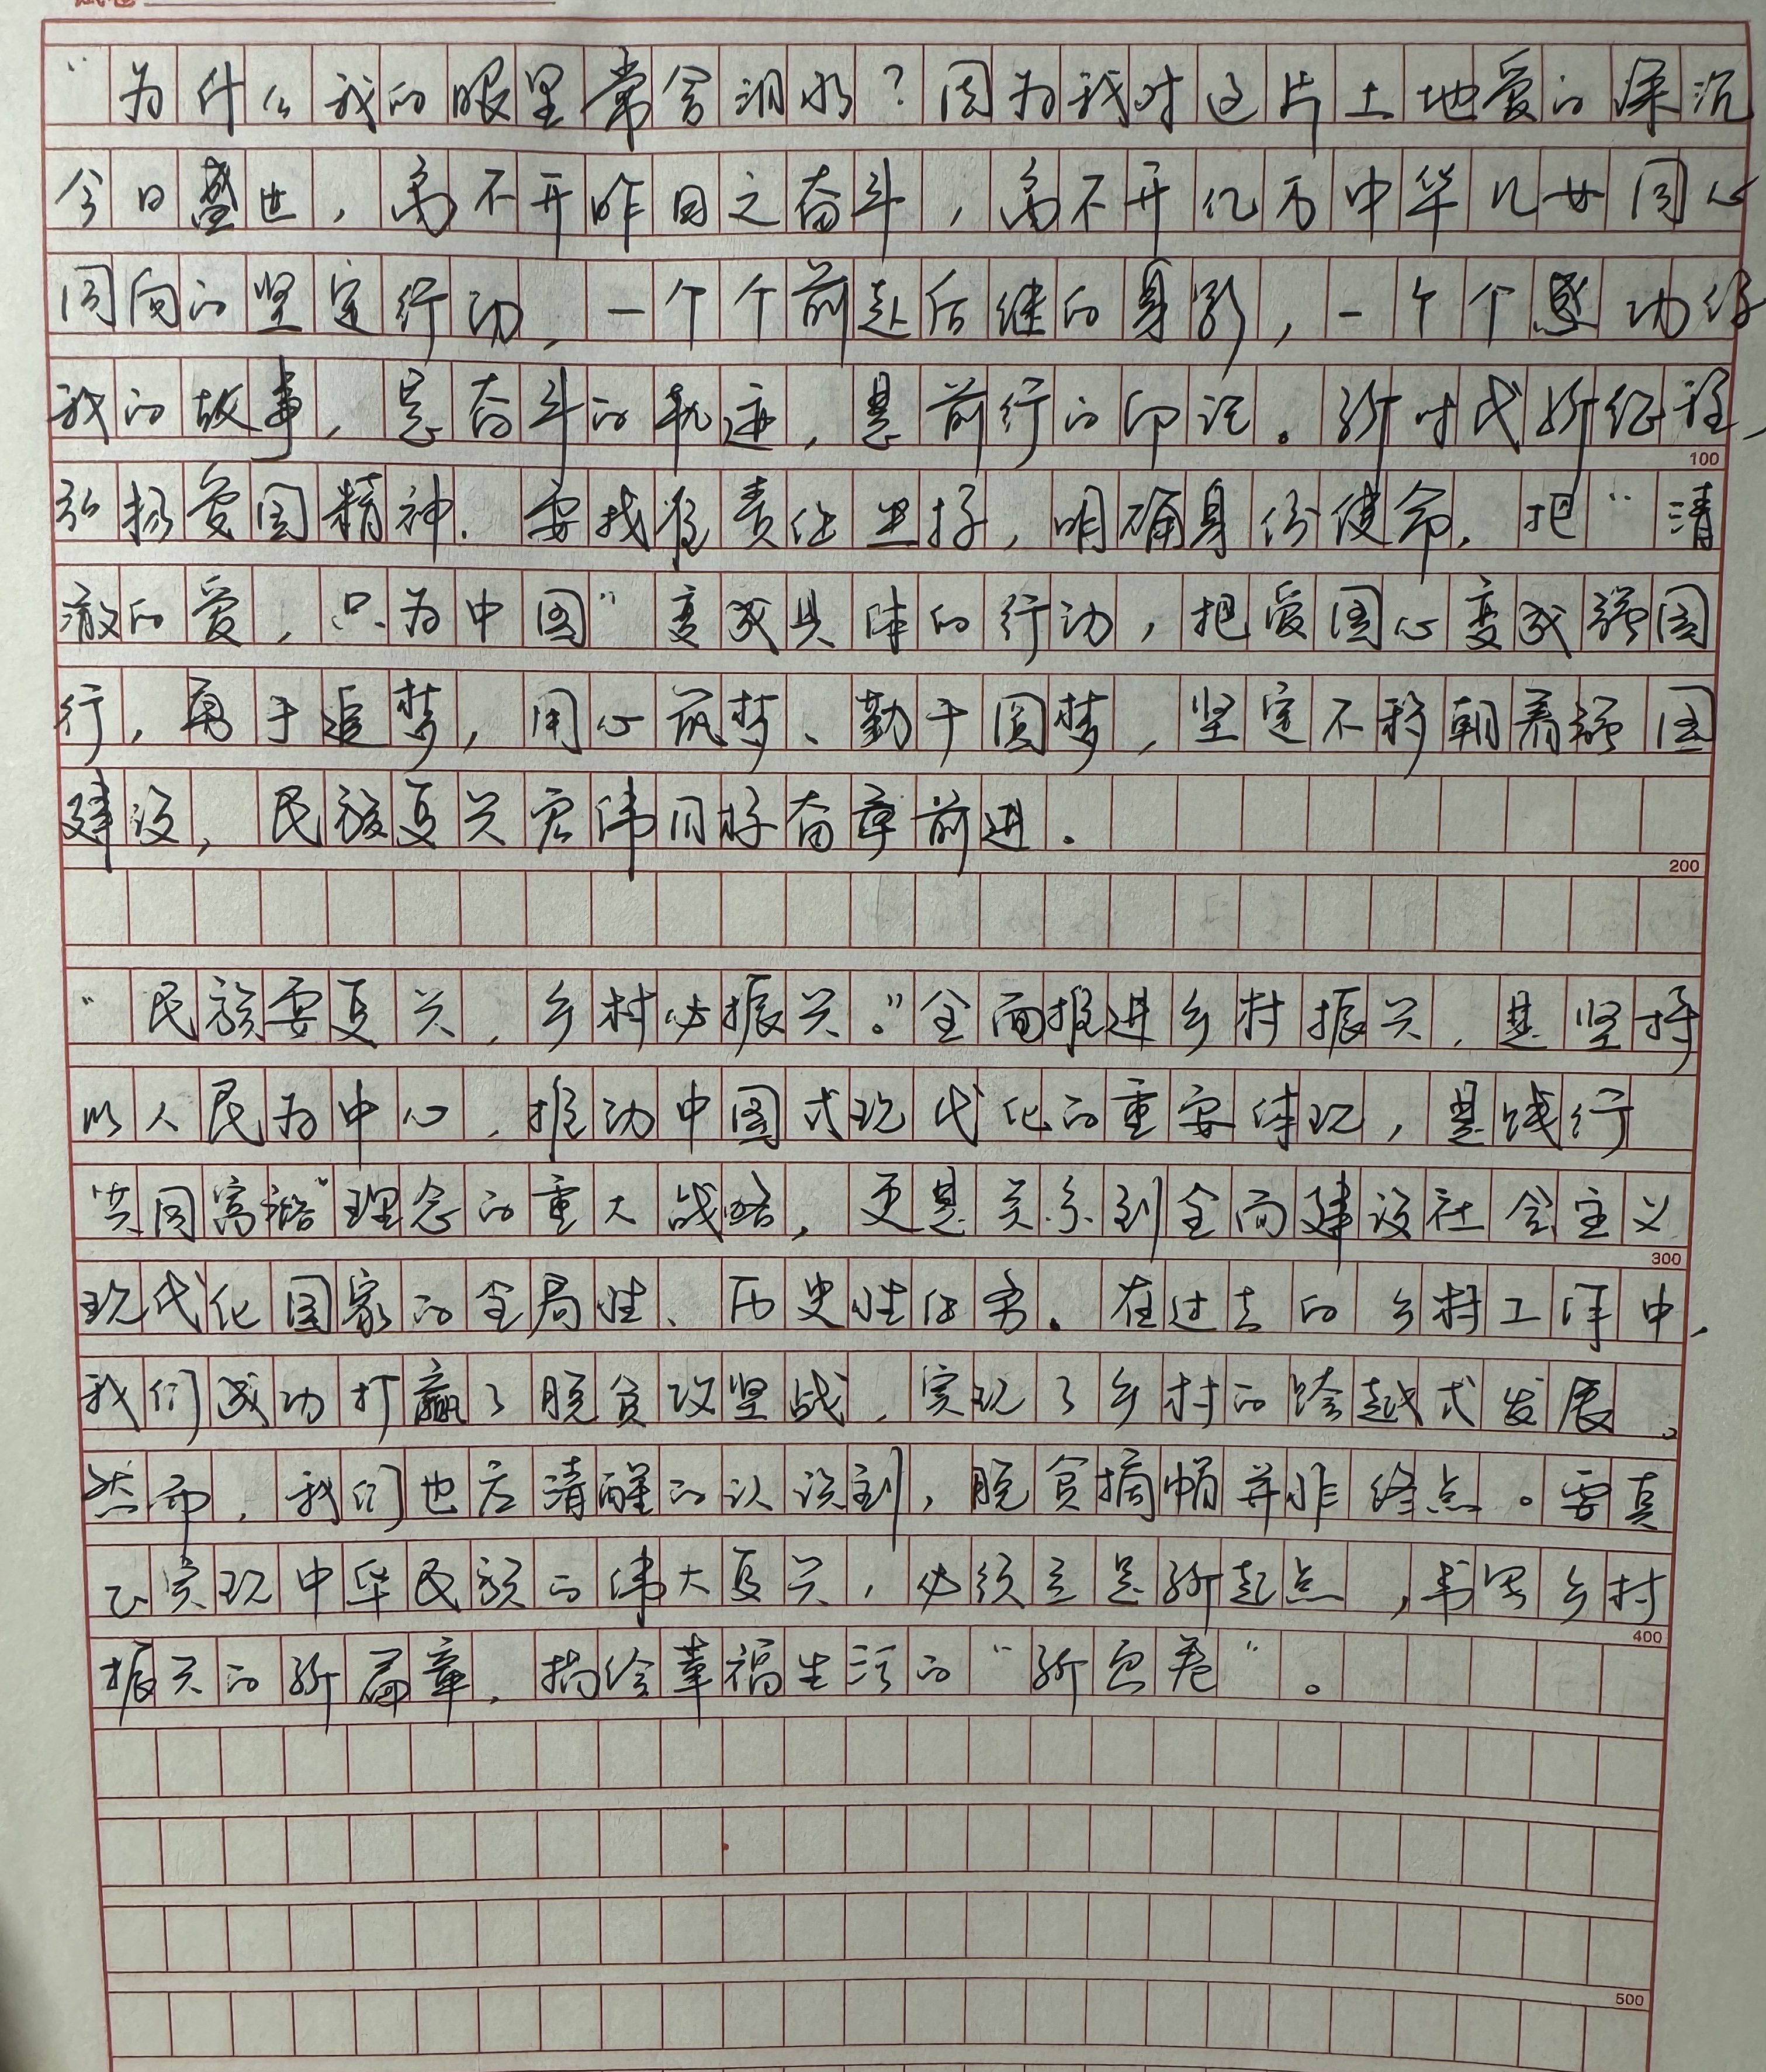 “为什么我的眼里常含泪水？因为我对这片土地爱的深沉
今日盛世，离不开昨日之奋斗，离不开亿万中华儿女同心
同向的坚定行动，一个个前赴后继的身影，一个个感动你
我的故事，是奋斗的轨迹，是前行的印记。新时代新征程，
100
弘扬爱国精神.要找准责任坐标，明确身份使命，把“清
澈的爱，只为中国”变成具体的行动，把爱国心变成强国
行，勇于追梦，用心筑梦、勤于圆梦，坚定不移朝着强国
建设，民族复兴宏伟目标奋勇前进。
200
“民族要复兴，乡村必振兴。”全面推进乡村振兴，是坚持
以人民为中心，推动中国式现代化的重要体现，是践行
“共同富裕”理念的重大战略，更是关系到全面建设社会主义
300
现代化国家的全局性、历史性任务。在过去的乡村工作中，
我们成功打赢了脱贫攻坚战，实现了乡村的跨越式发展。
然而，我们也应清醒的认识到，脱贫摘帽并非终点。要真
正实现中华民族的伟大复兴，必须立足新起点，书写乡村
400
振兴的新篇章，描绘幸福生活的“新画卷”。
500